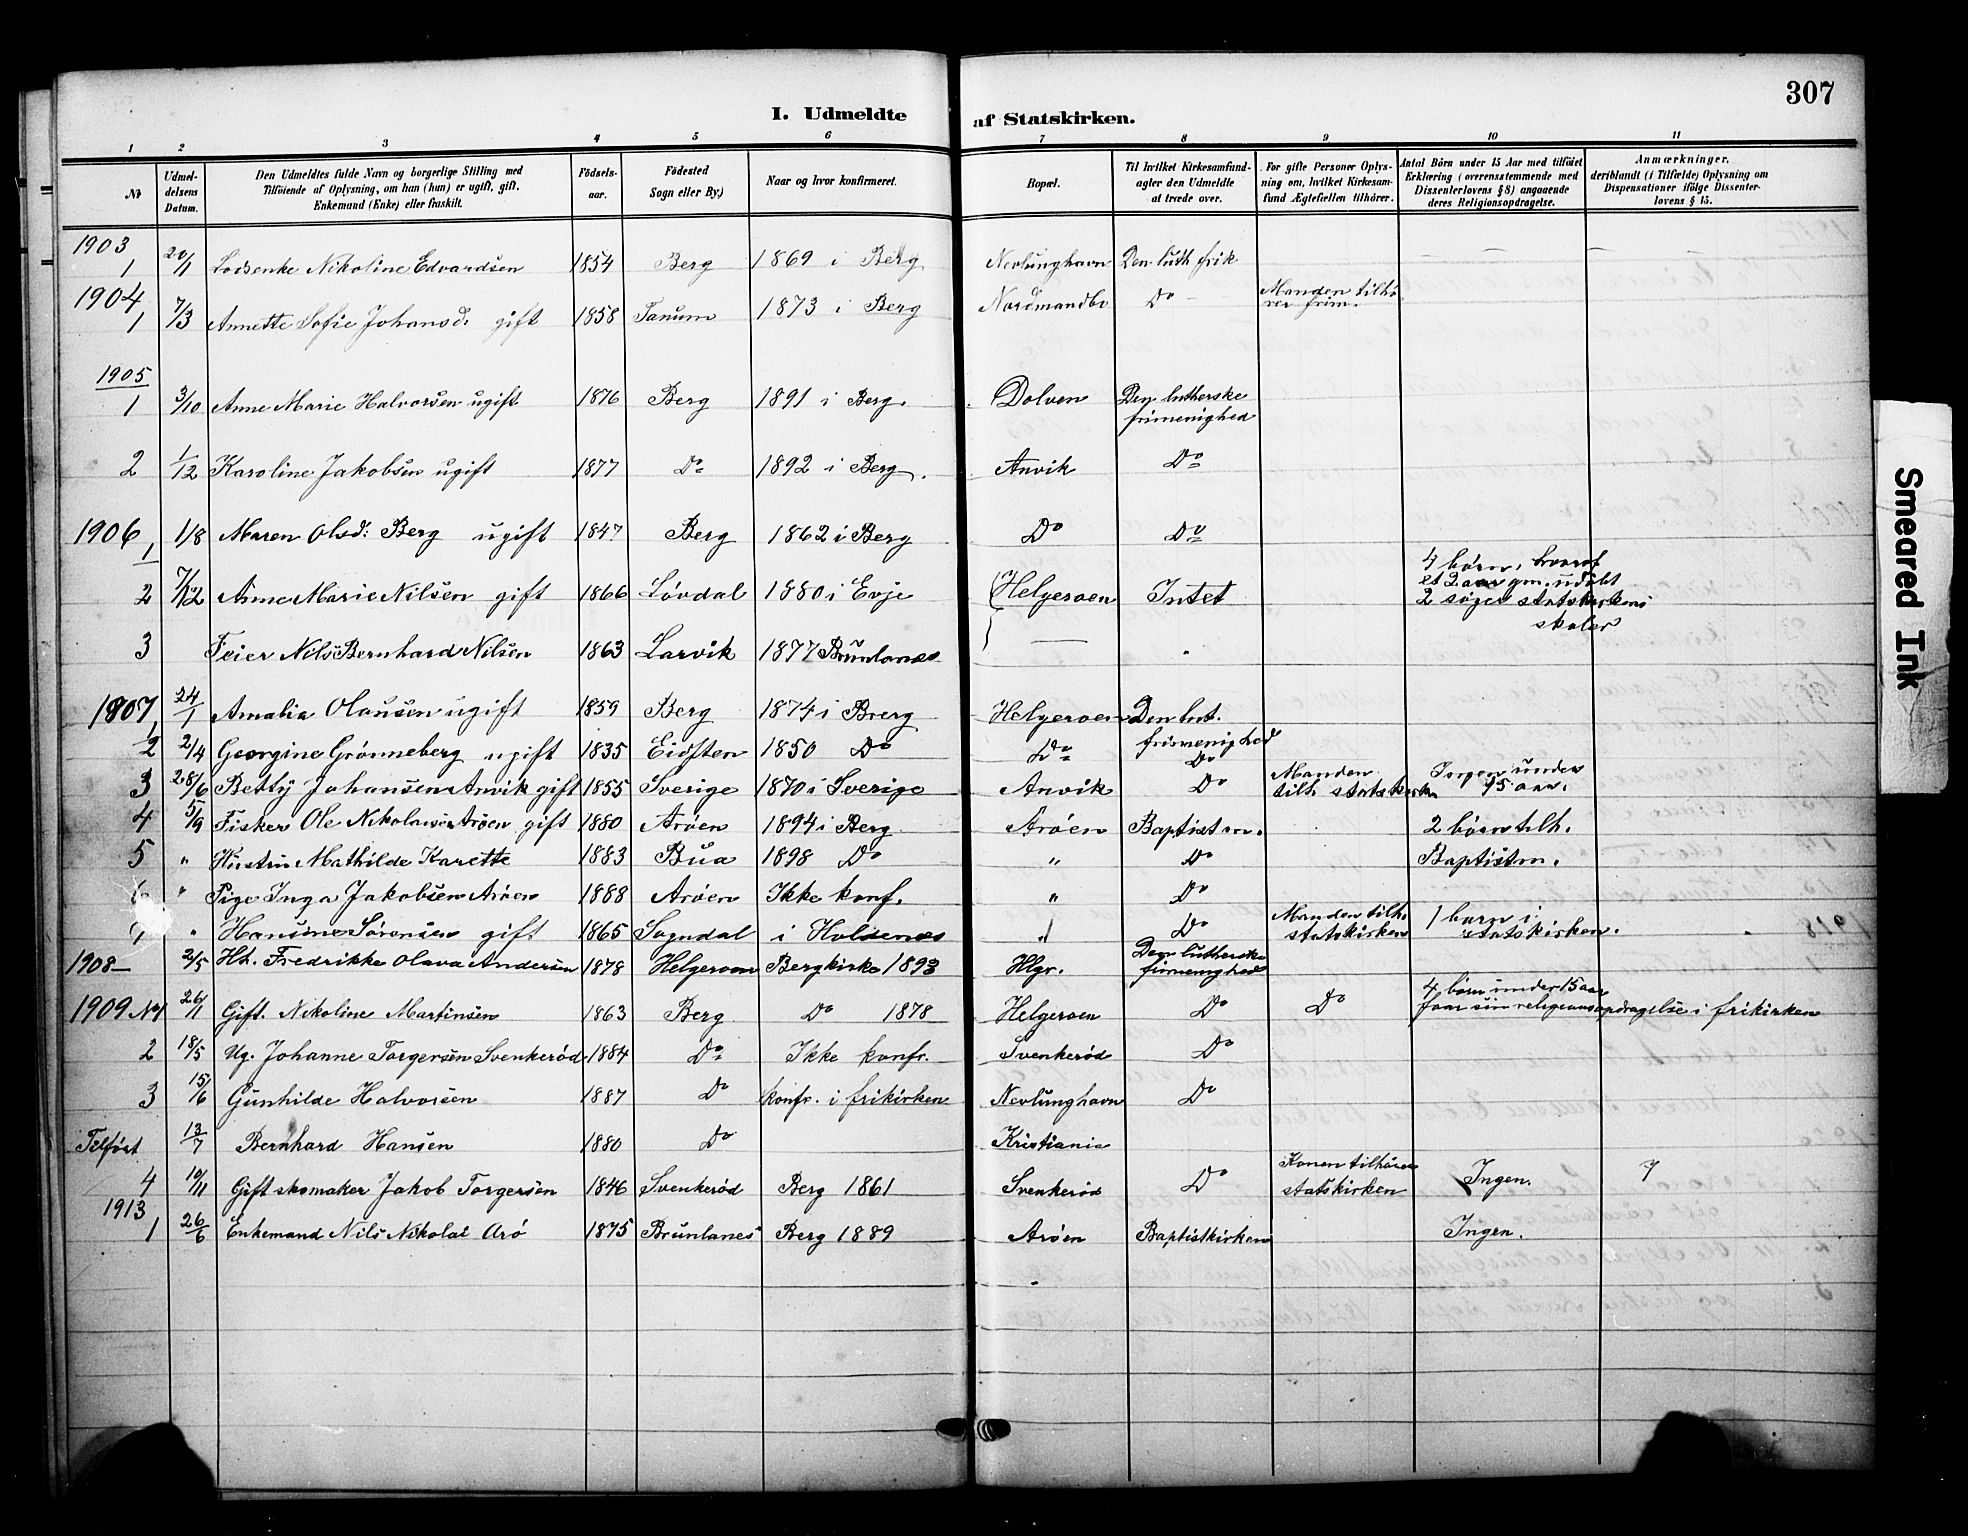 307
I. Udmeldte af Statskirken.
1 2 3 4 5 6 7 8 9 10 11
№
Udmeldelsens Datum.
Den Udmeldtes fulde Navn og borgerlige Stilling med
Tilföiende af Oplysning, om han (hun) er ugift, gift,
Enkemand (Enke) eller fraskilt.
Födselsaar.
Födested
Sogn eller By.)
Naar og hvor konfirmeret.
Bopæl.
Til hvilket Kirkesamfund-
agter den Udmeldte
at træde over.
For gifte Personer Oplys-
ning om, hvilket Kirkesam-
fund Ægtefællen tilhörer.
Antal Börn under 15 Aar med tilföiet
Erklæring (overensstemmende med
Dissenterlovens § 8) angaaende
deres Religionsopdragelse.
Anmærkninger,
deriblandt (i Tilfælde) Oplysning om
Dispensationer ifölge Dissenter-
lovens § 15.
1903
1 20/1 Lodsenke Nikoline Edvardsen 1854 Berg 1869 i Berg Nevlunghavn Den luth frik — — —
1904
1 7/3 Annette Sofie Johansd. gift 1858 Tanum 1873 i Berg Nordmandbo Do — Manden tilhö
rer frim.
1905
1 3/10 Anne Marie Halvorsen ugift 1876 Berg 1891 i Berg. Dolven Den lutherske
frimenighed
2 1/12 Karoline Jakobsen ugift 1877 Do 1892 i Berg. Anvik Do
1906
1 1/8 Maren Olsd: Berg ugift 1847 Berg 1862 i Berg Do Do
2 7/12 Anne Marie Nilsen gift 1866 Lövdal 1880 i Evje Helgeroen Intet 4 börn, hvoraf
et 2 aar gm. udöbt
2 söger statskirkens
skoler
3 Feier Nils Bernhard Nilsen 1863 Larvik 1877 Brunlanes —
1907
1 24/1 Amalia Olausen ugift 1859 Berg 1874 i Brerg Helgeroen Den lut.
frimenighed
2 2/4 Georgine Grönneberg ugift 1835 Eidsten 1850 Do Do Do
3 28/6 Betty Johansen Anvik gift 1855 Sverige 1870 i Sverige Anvik Do Manden
tilh. statskirken Ingen under
15 aar.
4 5/9 Fisker Ole Nikolaisen Aröen gift 1880 Aröen 1894 i Berg Aröen Baptist m. 2 börn tilh.
5 " Hustru Mathilde Karette 1883 Bua 1898 Do " Do Baptistm.
6 " Pige Inga Jakobsen Aröen 1888 Aröen Ikke konf. " Do
7 " Hansine Sörensen gift 1865 Sogndal i Holdenæs " Do Manden tilh.
statskirken 1 barn i
statskirken.
1908— 2/5 Ht. Fredrikke Olava Andersen 1878 Helgeroen Bergkirke 1893 Hlgr. Den lutherske
frimenighed
1909 No 1 26/1 Gift. Nikoline Martinsen 1863 Berg Do 1878 Helgeroen Do Do 4 börn under 15 aar
faar sin religionsopdragelse i frikirken
2 18/5 Ug. Johanne Torgersen Svenkeröd 1884 Do Ikke konfr. Svenkeröd Do
3 15/6 Gunhilde Halvorsen 1887 Do konfr. i frikirken Nevlunghavn Do
Tilföiet 13/7 Bernhard Hansen 1880 Do Kristiania
4 10/11 Gift skomaker Jakob Torgersen 1846 Svenkeröd Berg 1861 Svenkeröd Do Konen tilhörer
statskirken Ingen. 7
1913
1 26/6 Enkemand Nils Nikolai Arö 1875 Brunlanes Berg 1889 Aröen Baptistkirken Ingen.
Smeared Ink